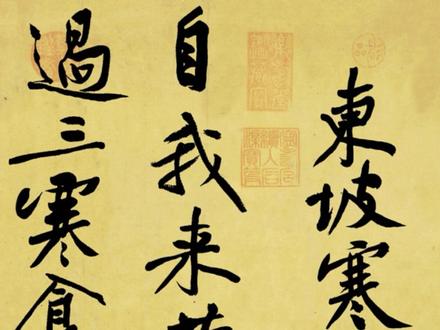 東坡寒
自我来
過三寒食